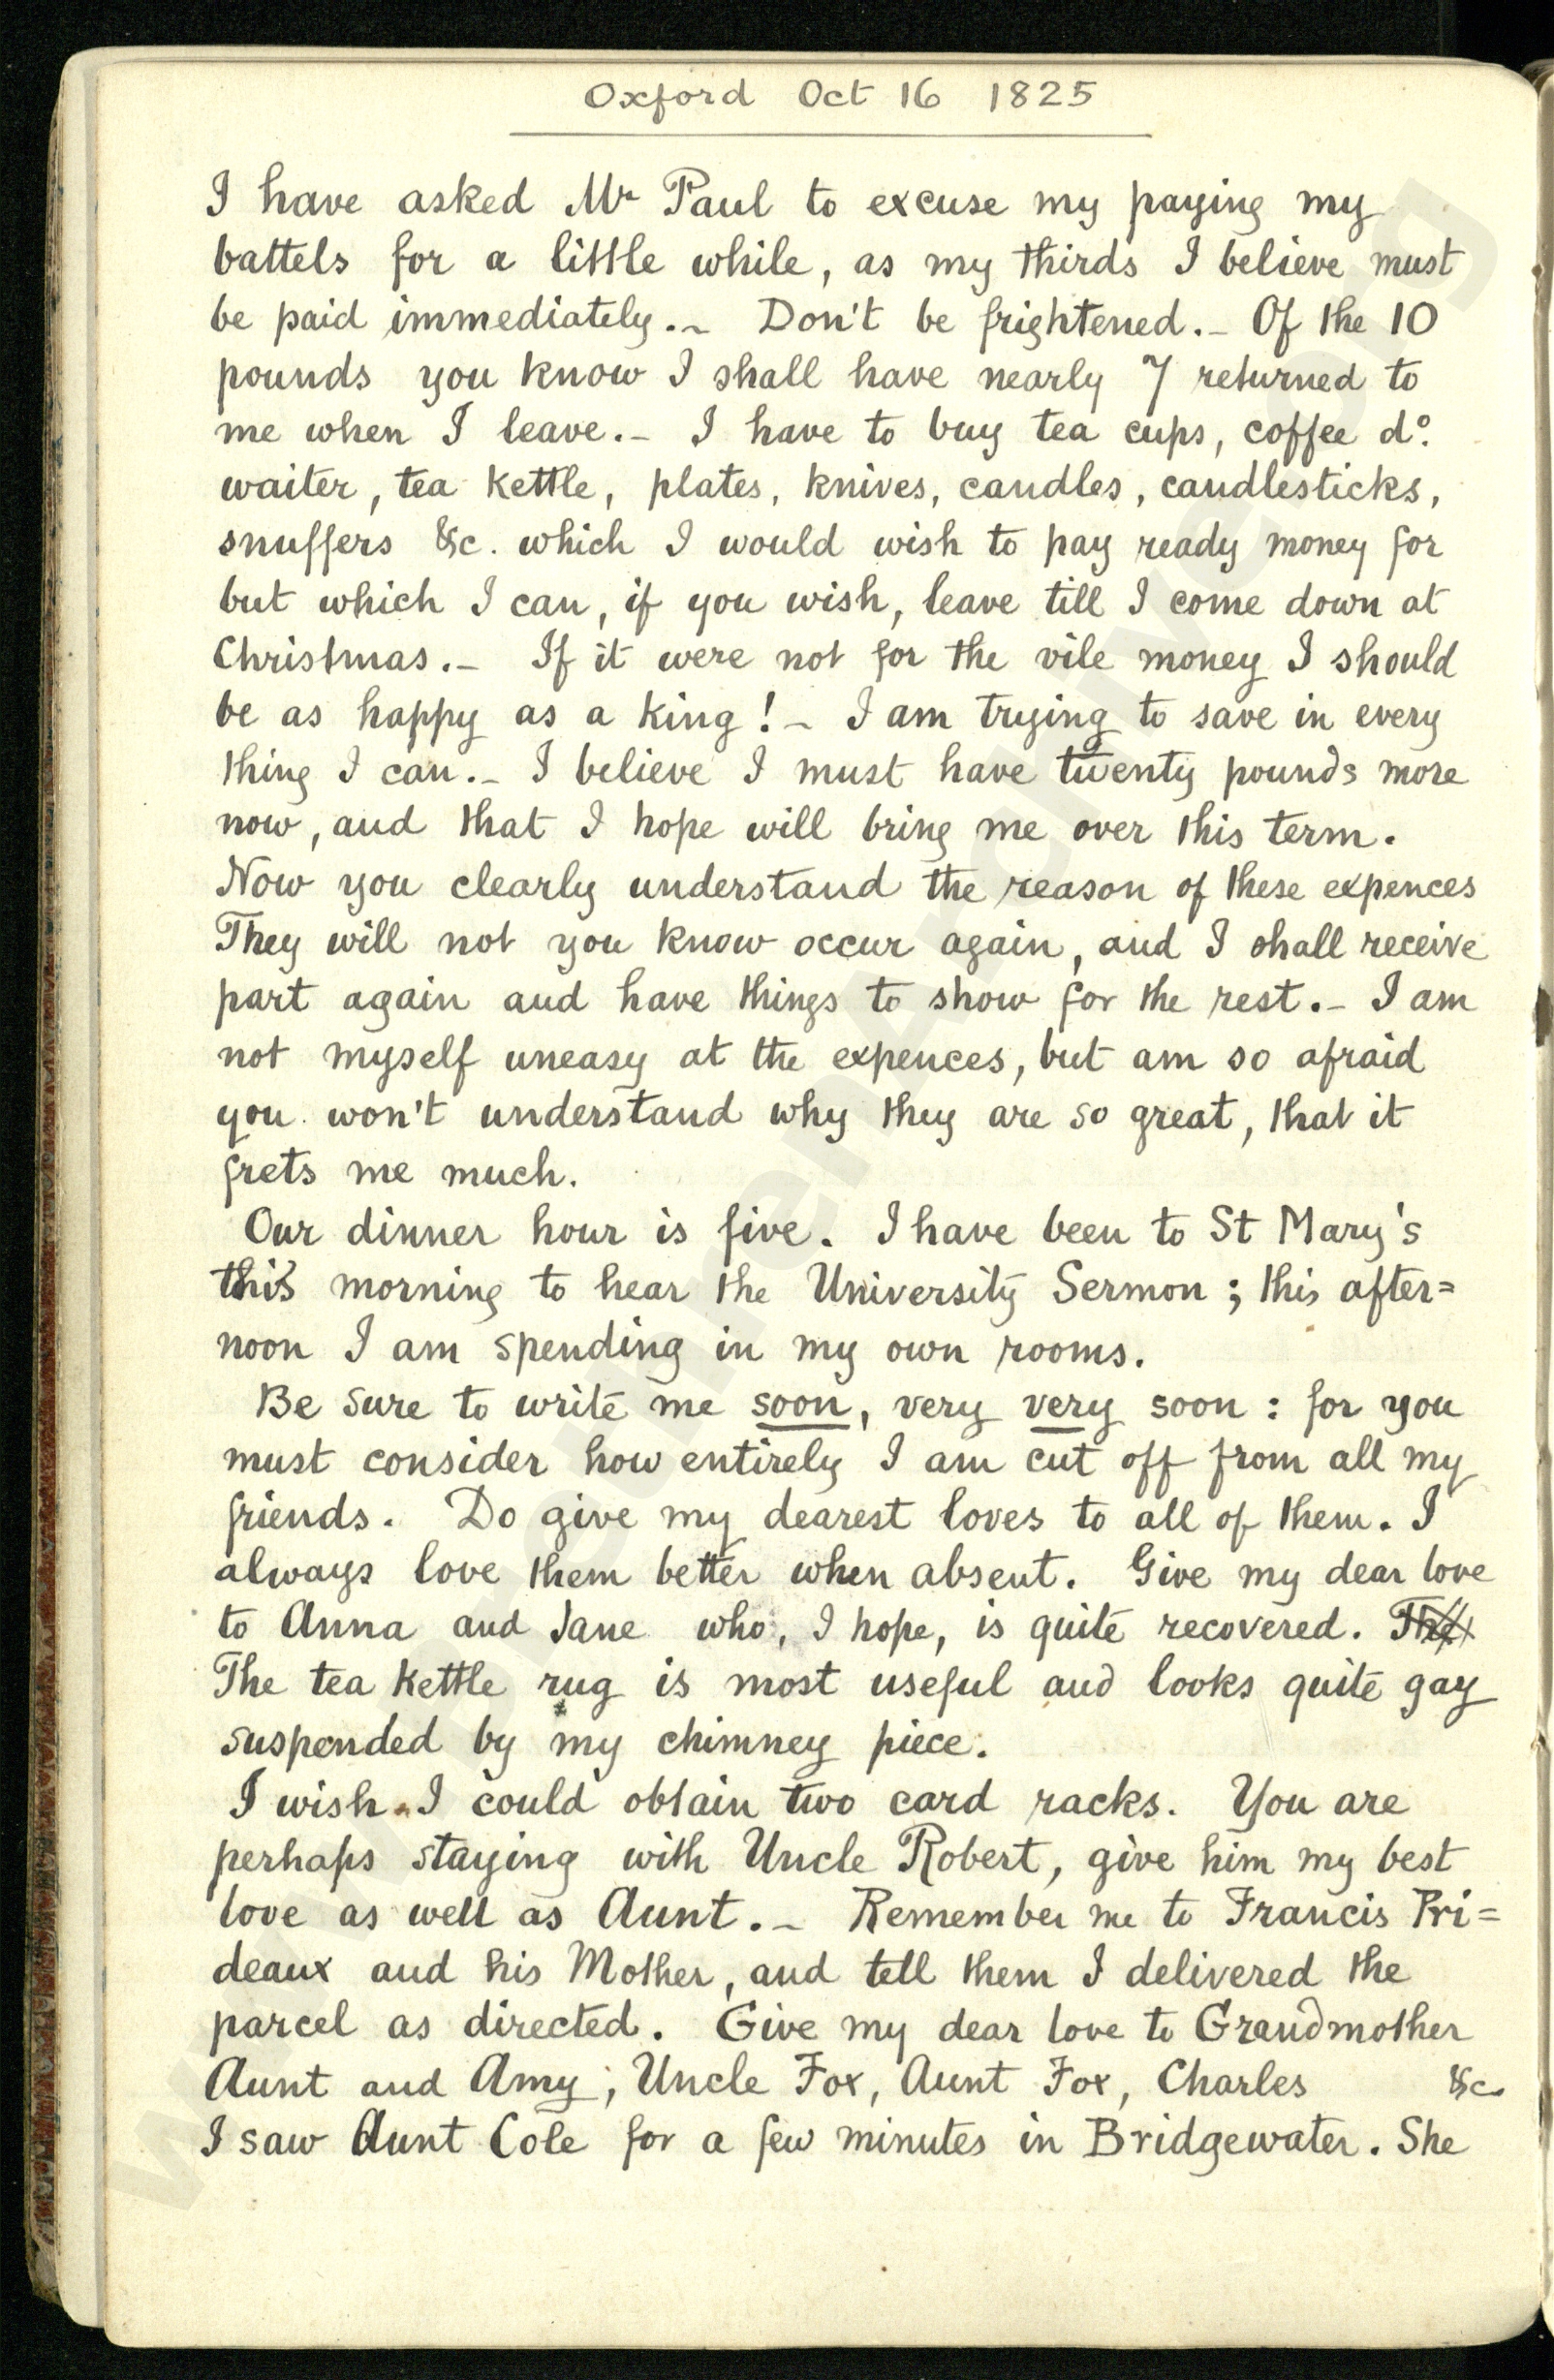 Oxford Oct 16 1825
I have asked Mr Paul to excuse my paying my
battels for a little while, as my thirds I believe must
be paid immediately.– Don't be frightened.– Of the 10
pounds you know I shall have nearly 7 returned to
me when I leave.– I have to buy tea cups, coffee do.
waiter, tea kettle, plates, knives, candles, candlesticks,
snuffers &c. which I would wish to pay ready money for
but which I can, if you wish, leave till I come down at
Christmas.– If it were not for the vile money I should
be as happy as a king!– I am trying to save in every
thing I can.– I believe I must have twenty pounds more
now, and that I hope will bring me over this term.
Now you clearly understand the reason of these expences
They will not you know occur again, and I shall receive
part again and have things to show for the rest.– I am
not myself uneasy at the expences, but am so afraid
you won't understand why they are so great, that it
frets me much.
Our dinner hour is five. I have been to St Mary's
this morning to hear the University Sermon; this after=
noon I am spending in my own rooms.
Be sure to write me soon, very very soon: for you
must consider how entirely I am cut off from all my
friends. Do give my dearest loves to all of them. I
always love them better when absent. Give my dear love
to Anna and Jane who, I hope, is quite recovered. The
The tea kettle rug is most useful and looks quite gay
suspended by my chimney piece.
I wish I could obtain two card racks. You are
perhaps staying with Uncle Robert, give him my best
love as well as Aunt.– Remember me to Francis Pri=
deaux and his Mother, and tell them I delivered the
parcel as directed. Give my dear love to Grandmother
Aunt and Amy, Uncle Fox, Aunt Fox, Charles &c
I saw Aunt Cole for a few minutes in Bridgewater. She